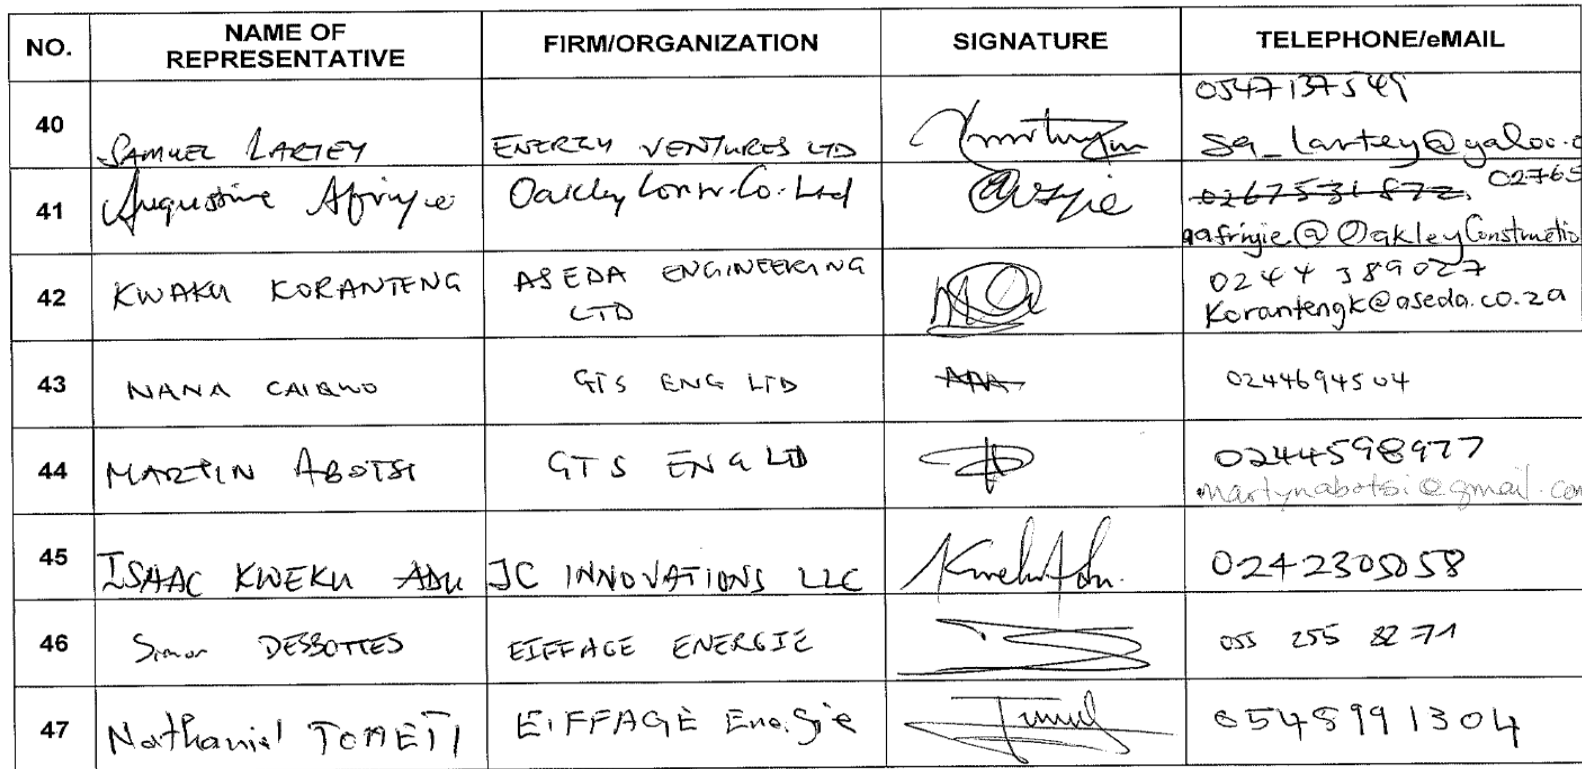 NO. NAME OF REPRESENTATIVE FIRM/ORGANIZATION SIGNATURE TELEPHONE/eMAIL
40 SAMUEL LARTEY ENERGY VENTURES LTD 0547137549
sa_lartey@yahoo.c
41 Augustine Afriyie Oakley Constr. Co. Ltd 0267531872 02765
aafriyie@OakleyConstructio
42 KWAKU KORANTENG ASEDA ENGINEERING LTD 0244 389027
Korantengk@aseda.co.za
43 NANA GTS ENG LTD 0244694504
44 MARTIN ABOTSI GTS ENG LTD 0244598977
martynabotsi@gmail.com
45 ISAAC KWEKU ADU JC INNOVATIONS LLC 0242305058
46 Simon DESBOTTES EIFFAGE ENERGIE 055 255 8271
47 Nathaniel TOMETI EIFFAGE Energie 0548991304